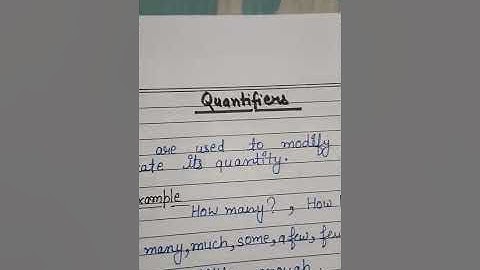 Quantifiers
are used to modify
ate its quantity.
xample
How many? , How
many, much, some, a few, few
enough